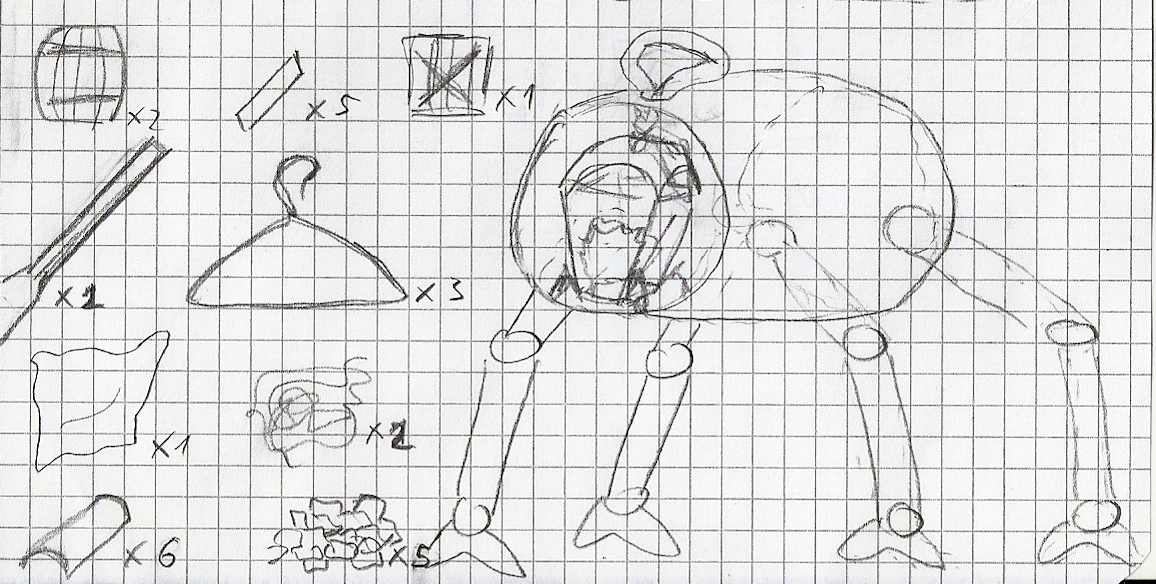 x2
x5
x1
x2
x3
x1
x2
x6
x5